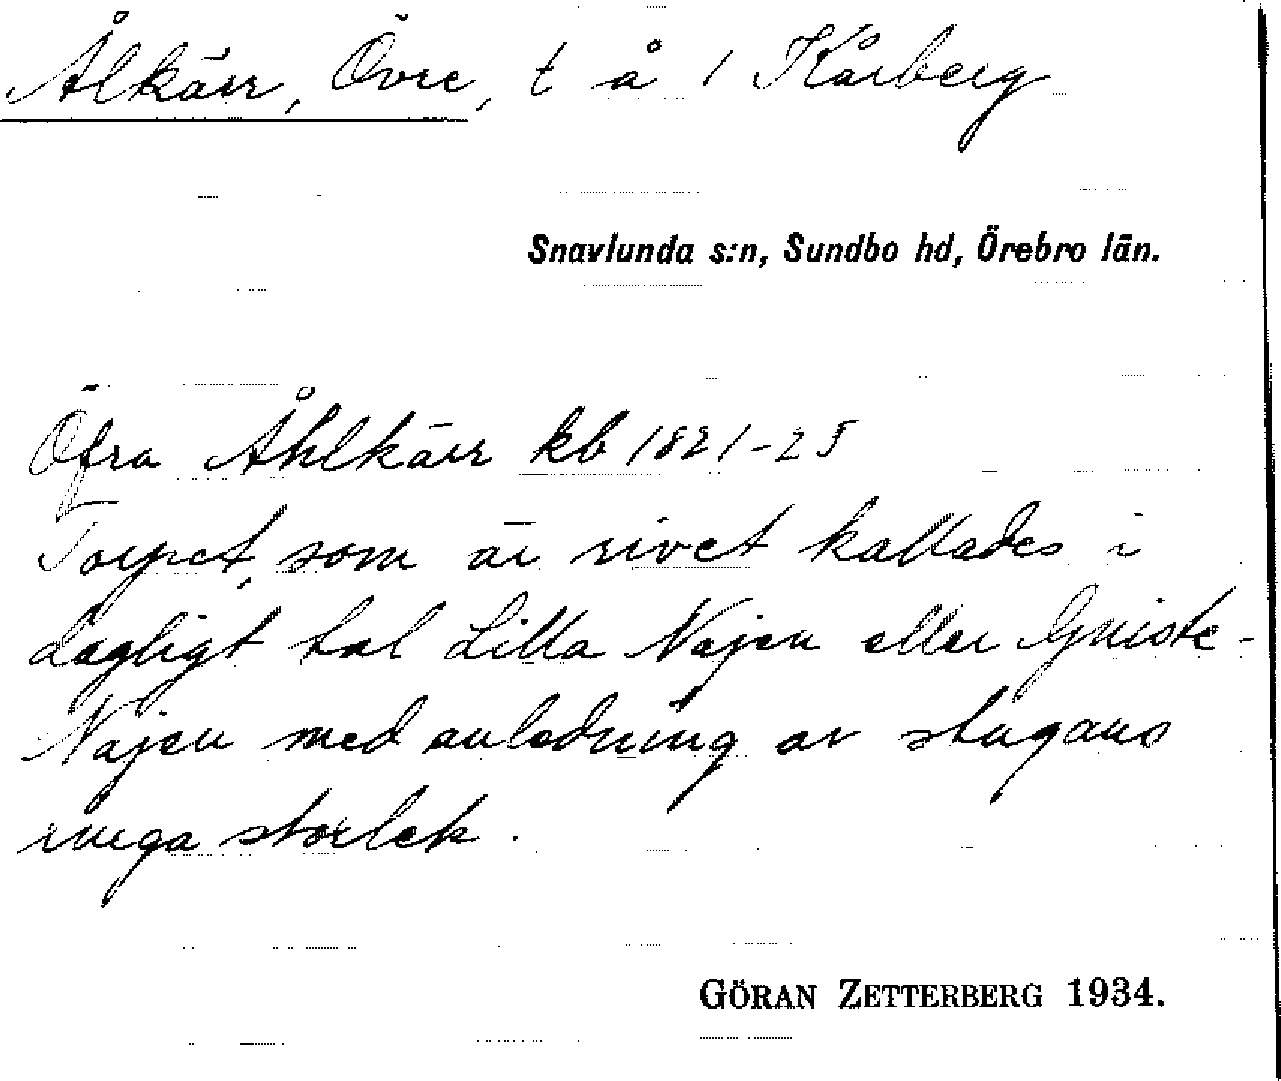 Ålkärr, Övre, t å 1 Kårberg
Snavlunda s:n, Sundbo hd, Örebro län.
Öfra Åhlkärr kb 1821-25
Torpet, som är rivet kallades i
dagligt tal Lilla Najen eller Gniste-
Najen med anledning av stugans
ringa storlek.
GÖRAN ZETTERBERG 1934.